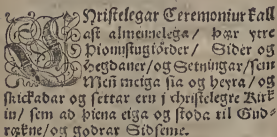 CHristelegar Ceremoniur kall
ast almennelega/ Þær ytre
Þionustugiörder/ Sider og
hegdaner/ og Setningar/ sem
Meñ meiga sia og heyra/ og
skickadar og settar eru i christelegre Kirk
iu/ sem ad þiena eiga og stoda til Gud
rækne/ og godrar Sidseme.